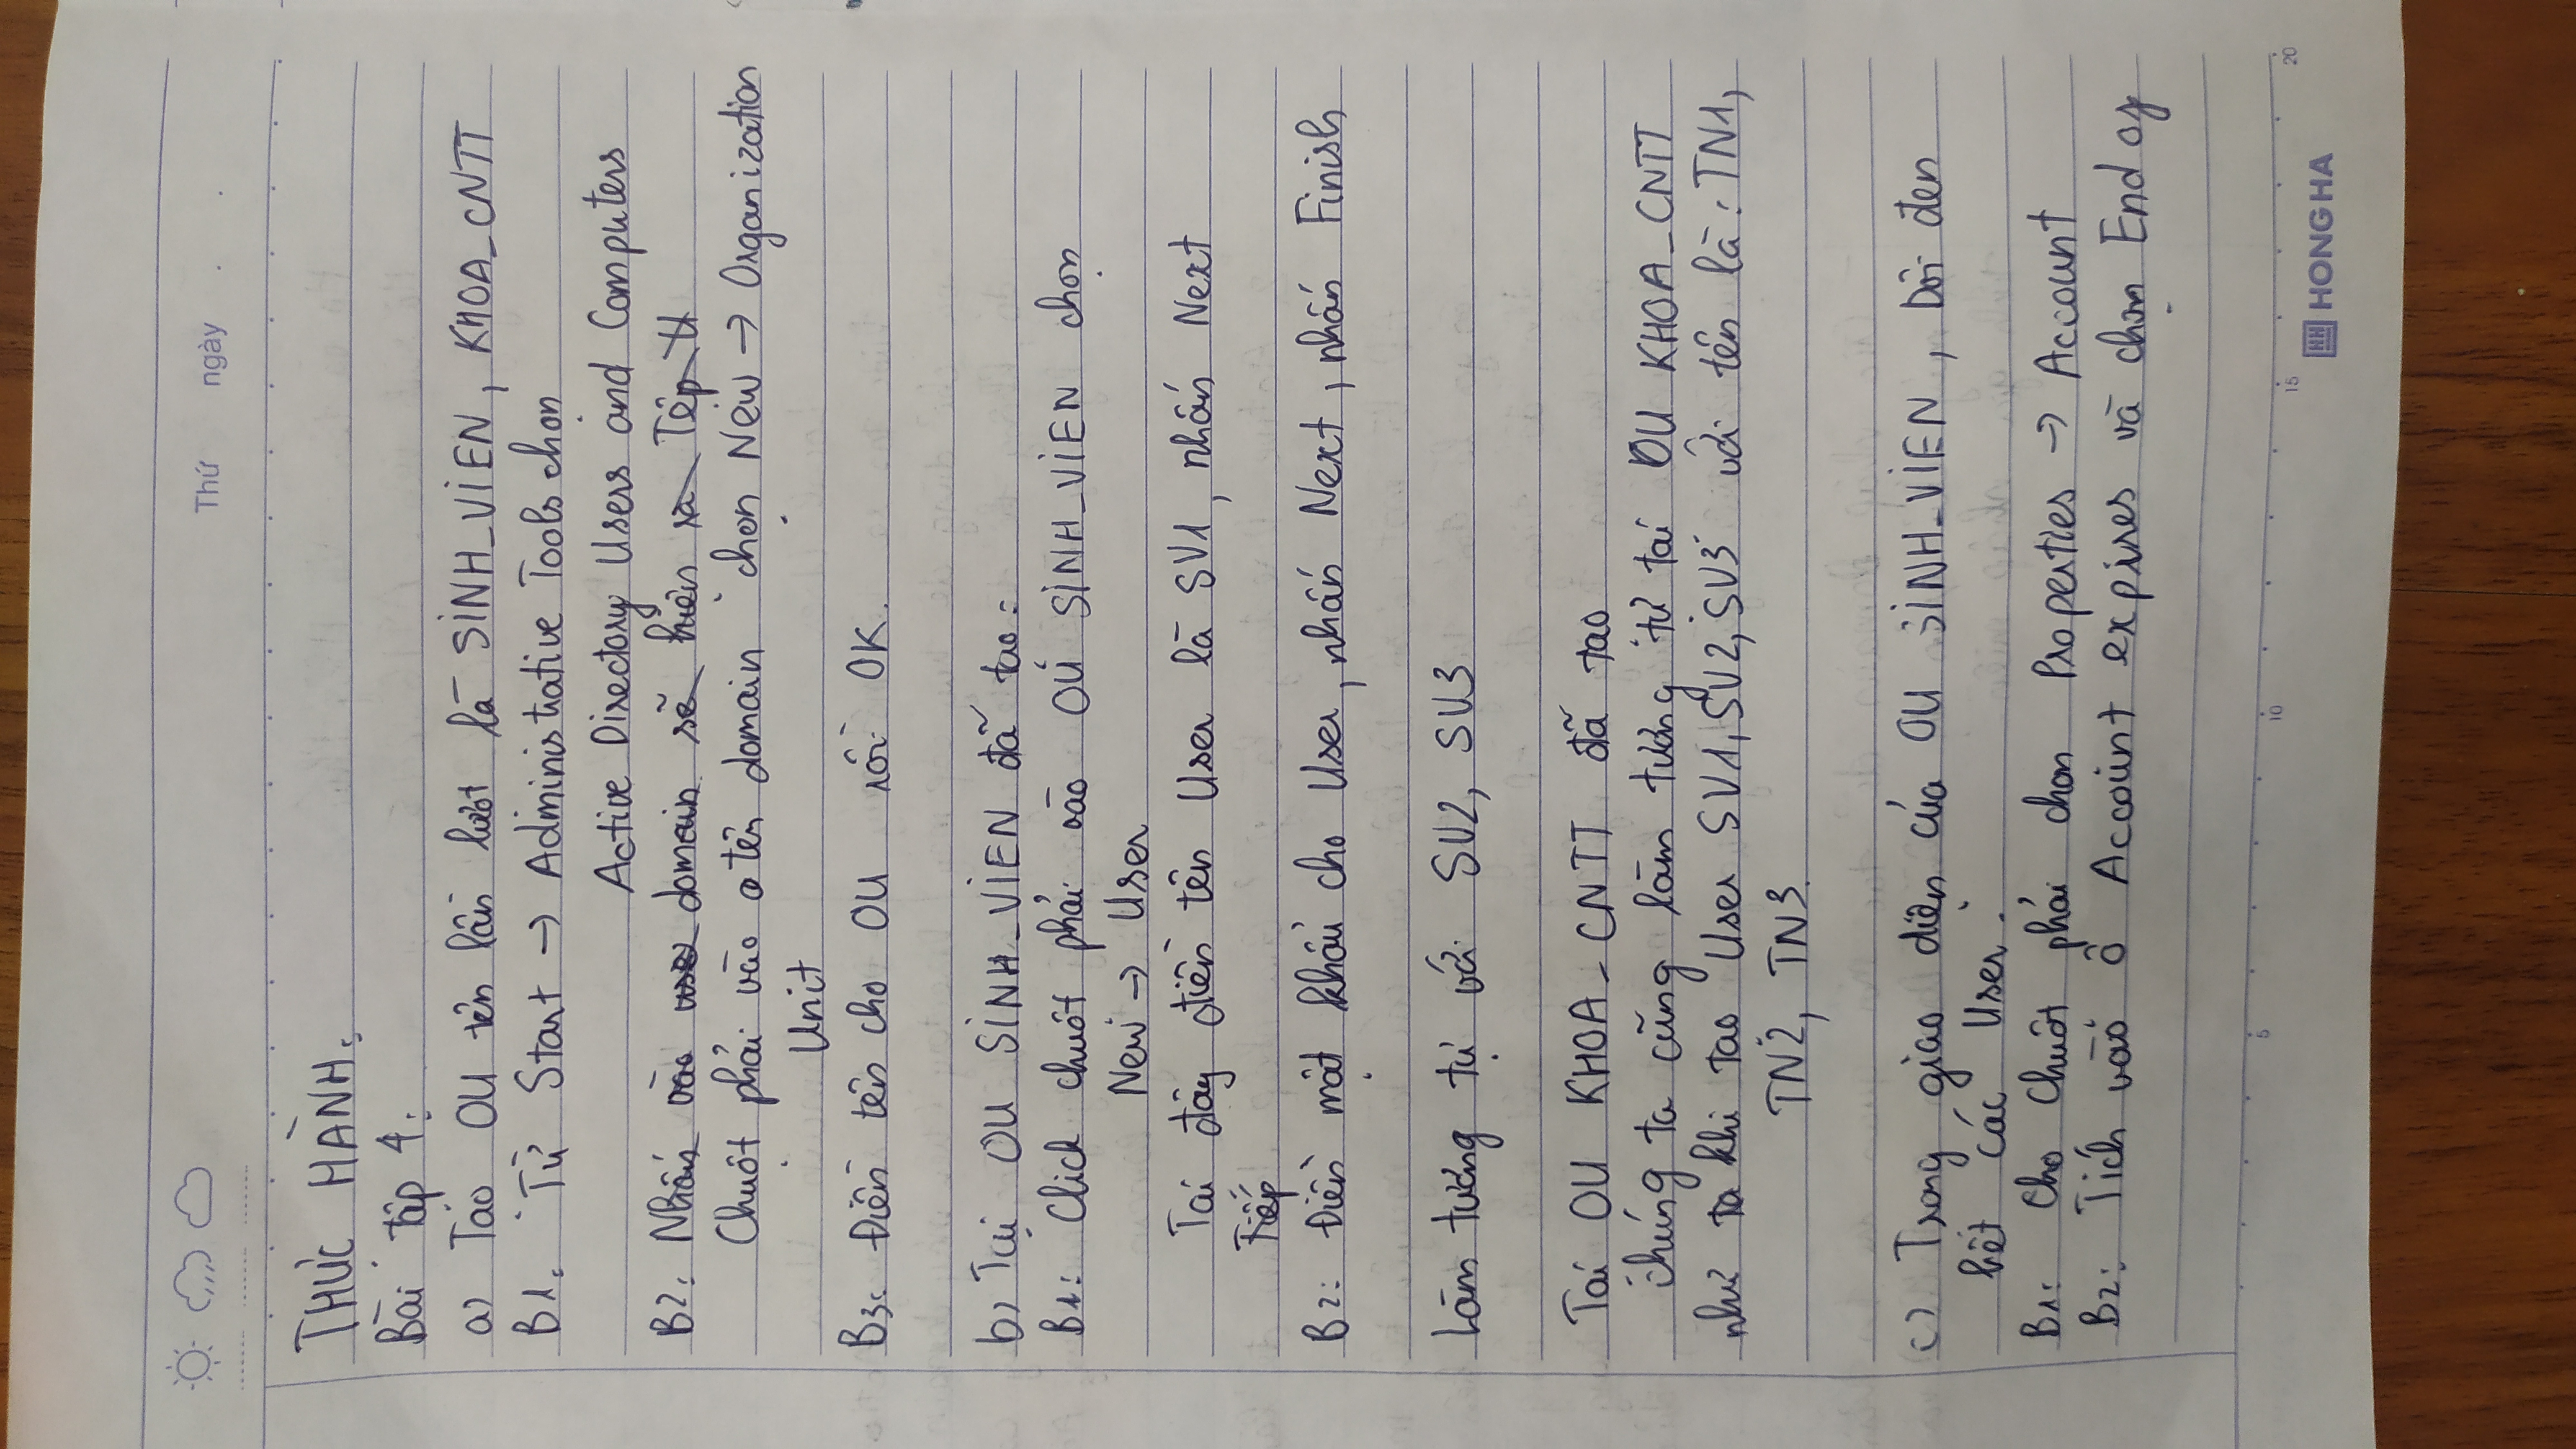 Thứ ngày . .
THỰC HÀNH:
Bài tập 4:
a) Tạo OU tên lần lượt là SINH_VIEN, KHOA_CNTT
B1: Từ Start → Administrative Tools chọn
Active Directory Users and Computers
B2: Nhấn vào use domain sẽ hiện ra Tệp
Chuột phải vào tên domain chọn New → Organization
Unit
B3: Điền tên cho OU rồi OK.
b) Tại OU SINH_VIEN đã tạo:
B1: Click chuột phải vào OU SINH_VIEN chọn
New → User
Tại đây điền tên User là SV1, nhấn Next
Tiếp
B2: Điền mật khẩu cho User, nhấn Next, nhấn Finish
Làm tương tự với SV2, SV3
Tại OU KHOA_CNTT đã tạo
chúng ta cũng làm tương tự tại OU KHOA_CNTT
như ta khi tạo User SV1, SV2, SV3 với tên là: TN1,
TN2, TN3.
c) Trong giao diện của OU SINH_VIEN, Dôi đen
hết các User.
B1: Cho Chuột phải chọn Properties → Account
B2: Tích vào ô Account expires và chọn End of
5 10 15 20
HH HONG HA